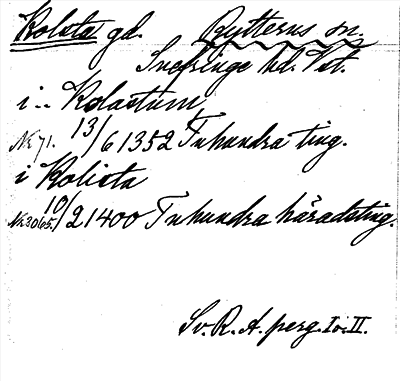 Kolsta gd. Rytterns sn.
Snefringe hd. Vst.
i - Kolastum
Nr 71. 13/6 1352 Tuhundra ting.
i Kolista
Nr 3065. 10/2 1400 Tuhundra häradsting.
Sv. R. A. perg. I o. II.